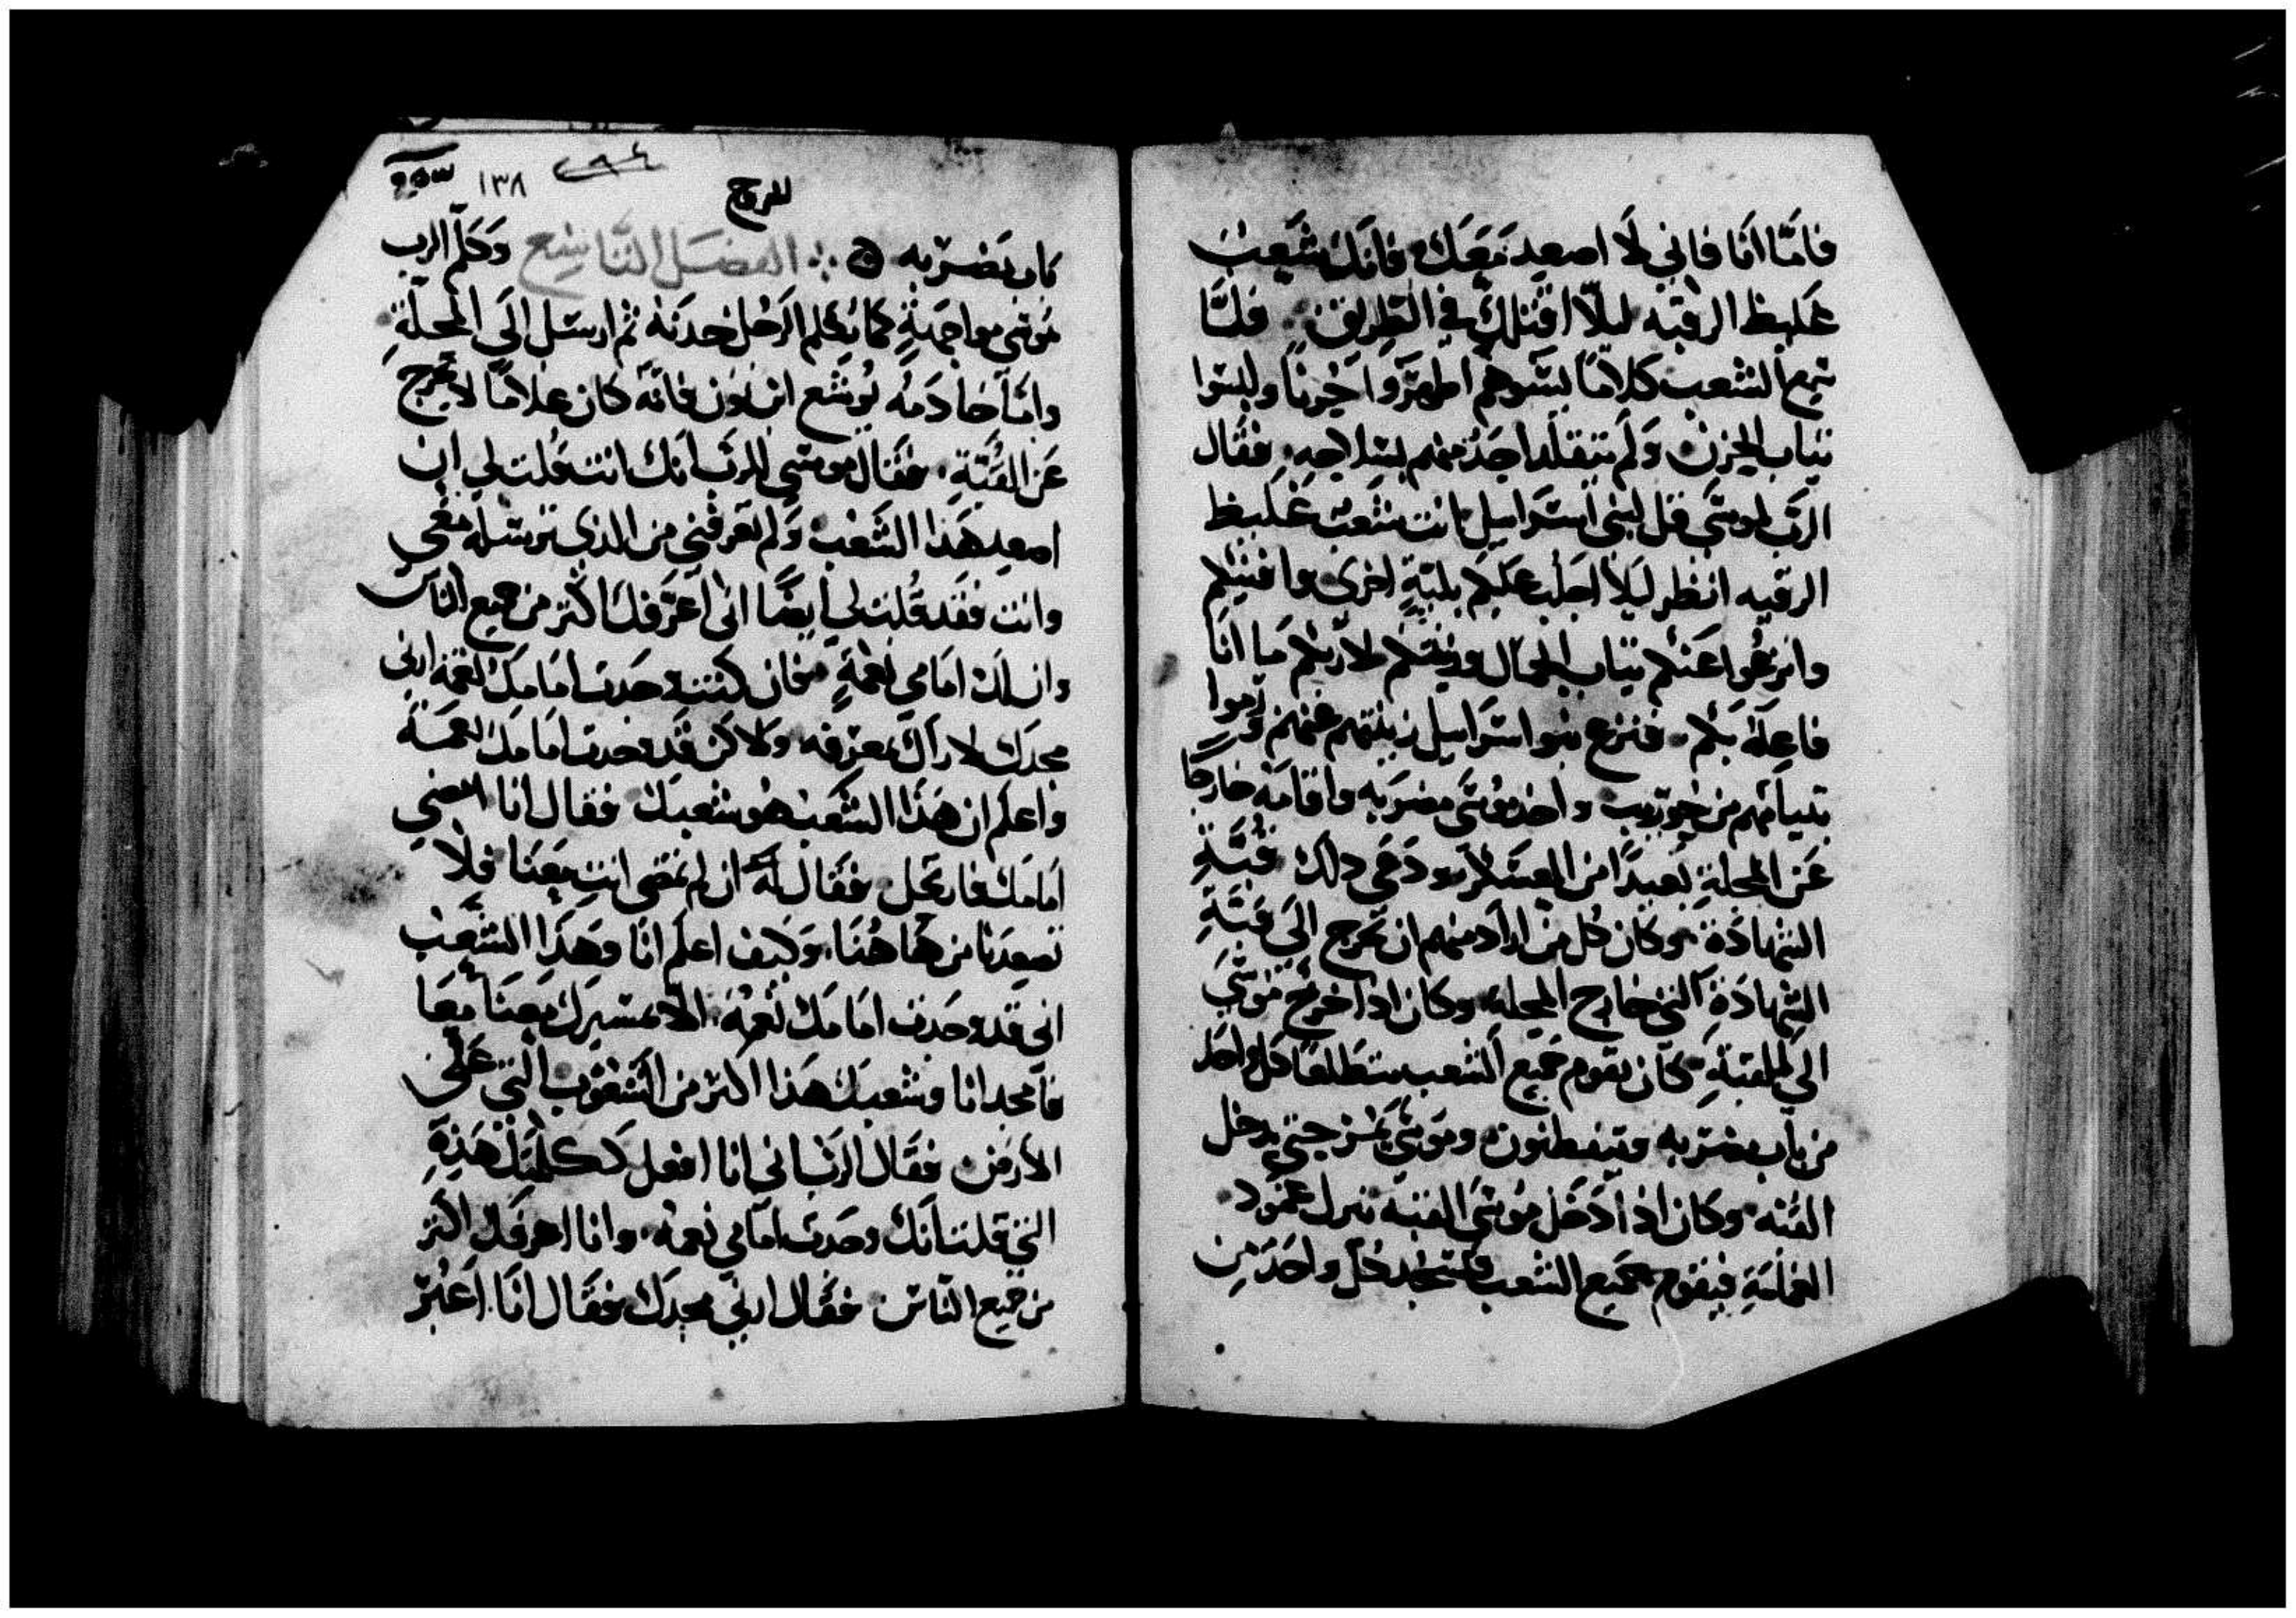 فامَّا انَا فاني لَا اصعد مَعَك فانك شَعب
غَليظ الرقبه ليلّا اقتلك في الطريق ۞ فلمَّا
سَمع الشعب كلامًا يسَوهم اظهرَوا حُزنًا ولبسوا
تياب الحزن وَلم يتقلد احَدٌ منهم بسِلاحِهِ فقال
الرَب لموسَى قل لبنى اسرَاييل انت شعبٌ غليظ
الرقبه انظر ليَلا اجلب عليكم بليّةٍ اخرى وافنيكم
وانزعُوا عَنكم تياب الجمال وزينتكم لاريكم مَا انَا
فاعِلهُ بكم فنزع بنو اسرَاييل زينتهم عنهم ورموا
بتيابهم من حوريب واخد موسَى مضرَبه واقامَهُ خارجًا
عَن المحلةِ بَعيدًا من العسكر ودَعى دلك قُبَّةِ
الشهادَة وكان كل من ارَاد منهم ان يخرج الَى قبّةِ
الشهادَةِ التي خارج المحلهِ وكان ادا خرج مُوسَى
الى القبّةِ كان يقوم جَميع الشعب متطلعًا كل واحَد
من باب مضرَبه ويتفطنون وموسَى يمُر حتى يدخل
القبّه وكان ادا دَخَل مُوسَى القبّه نزل عَمُود
الغمامَةِ فيقوم جميع الشعب كل واحَد مِن
للروج
١٣٨
كان مَضرَبه ۞ الفصَل التَاسِع وَكلم الرب
مُوسَى مواجَهةٍ كما يُكلم الرَجُل خدنَهُ ثم ارسَل الَى المحلّةِ
وامَا خادمُه يُوشع ابن نون فانَّه كان غلامًا لا يخرج
عَن القبَّةِ فقال موسَى للرب انك انت قلت لي ان
اصعد هَدَا الشَعب وَلم تعَرفني من الدي ترسله معي
وانت فقَد قُلت لي ايضًا انى اعرَفك اكتر من جميع الناس
وان لك امَامي نعمَةٍ فان كنت وجَدت امَامَك نعمَه ارني
مجدَك لاراك بمعرَفه ولاكن قَد وجدت امَامَك نعمَة
واعلم ان هَدا الشَعب هُو شعبك فقال انا امضي
امَامك فارتحل فقال لهُ ان لم تمضى انتَ معَنا فلا
تصعدنا من هَاهُنَا وَكيف اعلم انا وهَدَا الشَعب
انى قد وجَدت امَامَك نعمَة الا بمسيرك مَعنَا معَا
فامجد انا وشعبك هَدا اكتر من الشعُوب التي عَلى
الارض فقال الرَب اني انا افعل لك كلمَتك هَدِهِ
التي قلت انك وجَدت امَامي نعمه وانا اعرفك اكتر
من جميع الناس فقال ارني مجدك فقال انَا اعَبُر